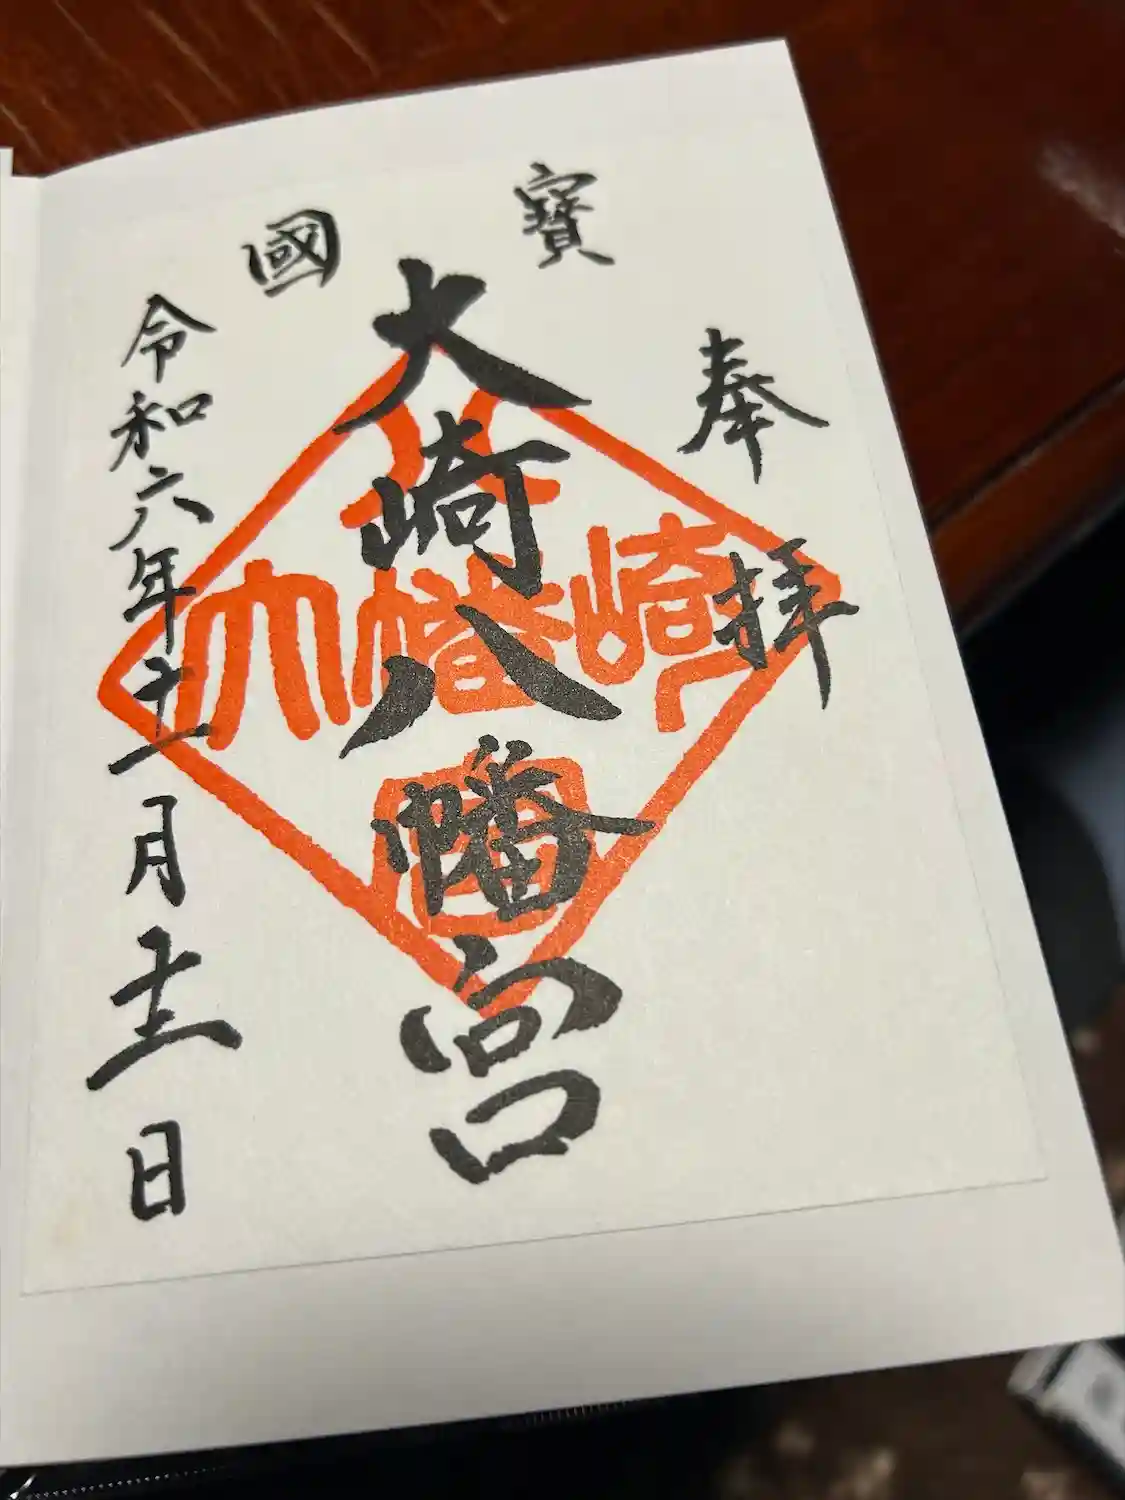 奉拝
國寶
大崎八幡宮
令和六年十一月十二日
大幡崎